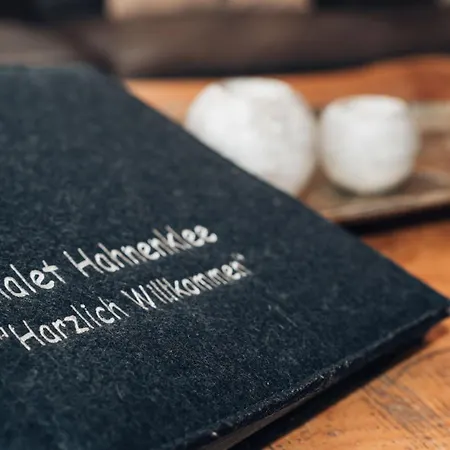 alet Hahnenklee
"Harzlich Willkommen"